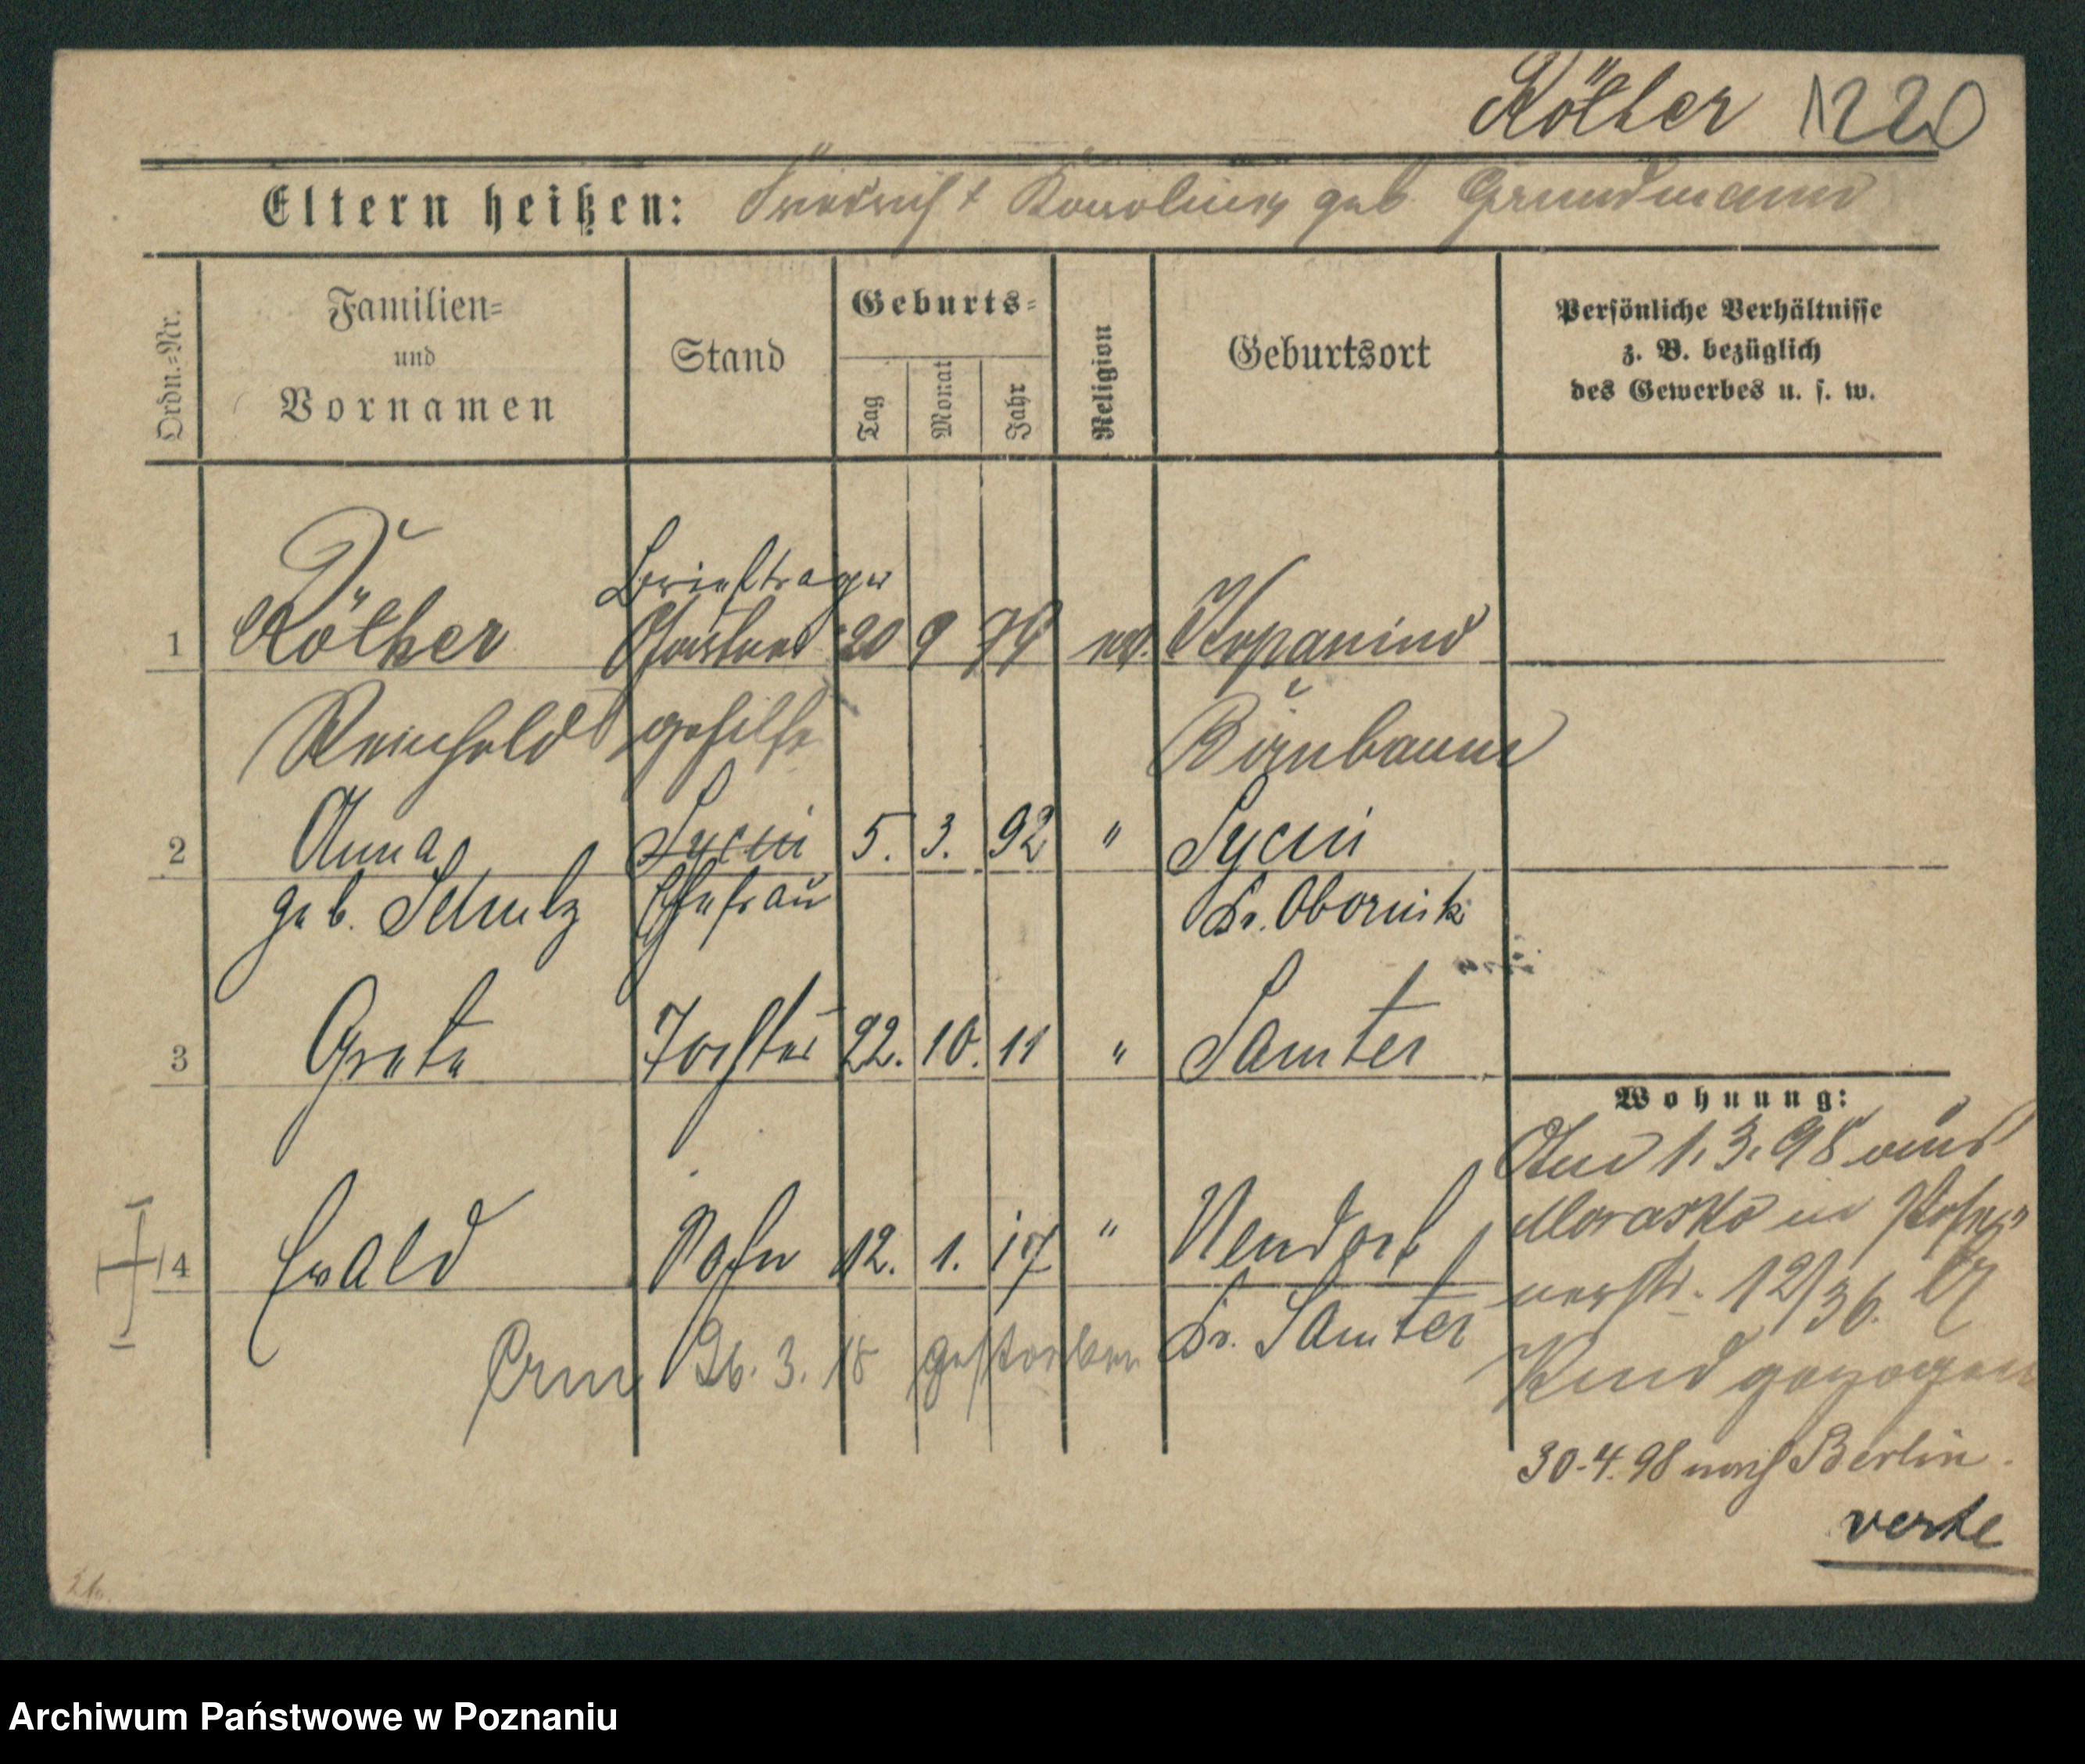 Köther 1220
Eltern heißen: Friedrich & Karoline geb. Grundmann
Ordn.-Nr.
Familien-
und
Vornamen
Stand
Geburts-
Tag
Monat
Jahr
Religion
Geburtsort
Persönliche Verhältnisse
z. B. bezüglich
des Gewerbes u. s. w.
Briefträger
1 Köther 20 9 74 ev. Kopanine
Reinhold gehilfe Birnbaum
2 Anna Sycin 5. 3. 92 " Sycin
geb. Schulz Ehefrau Kr. Obornik
3 Grete Tochter 22. 10. 11 " Samter
Wohnung:
Am 1.3.98 aus
Morasko in
4 Ewald Sohn 12. 1. 17 " Neudorf
Kr. Samter
12/36.
Am 26. 3. 18 gestorben
Kind gezogen
30.4.98 nach Berlin.
verte
Archiwum Państwowe w Poznaniu